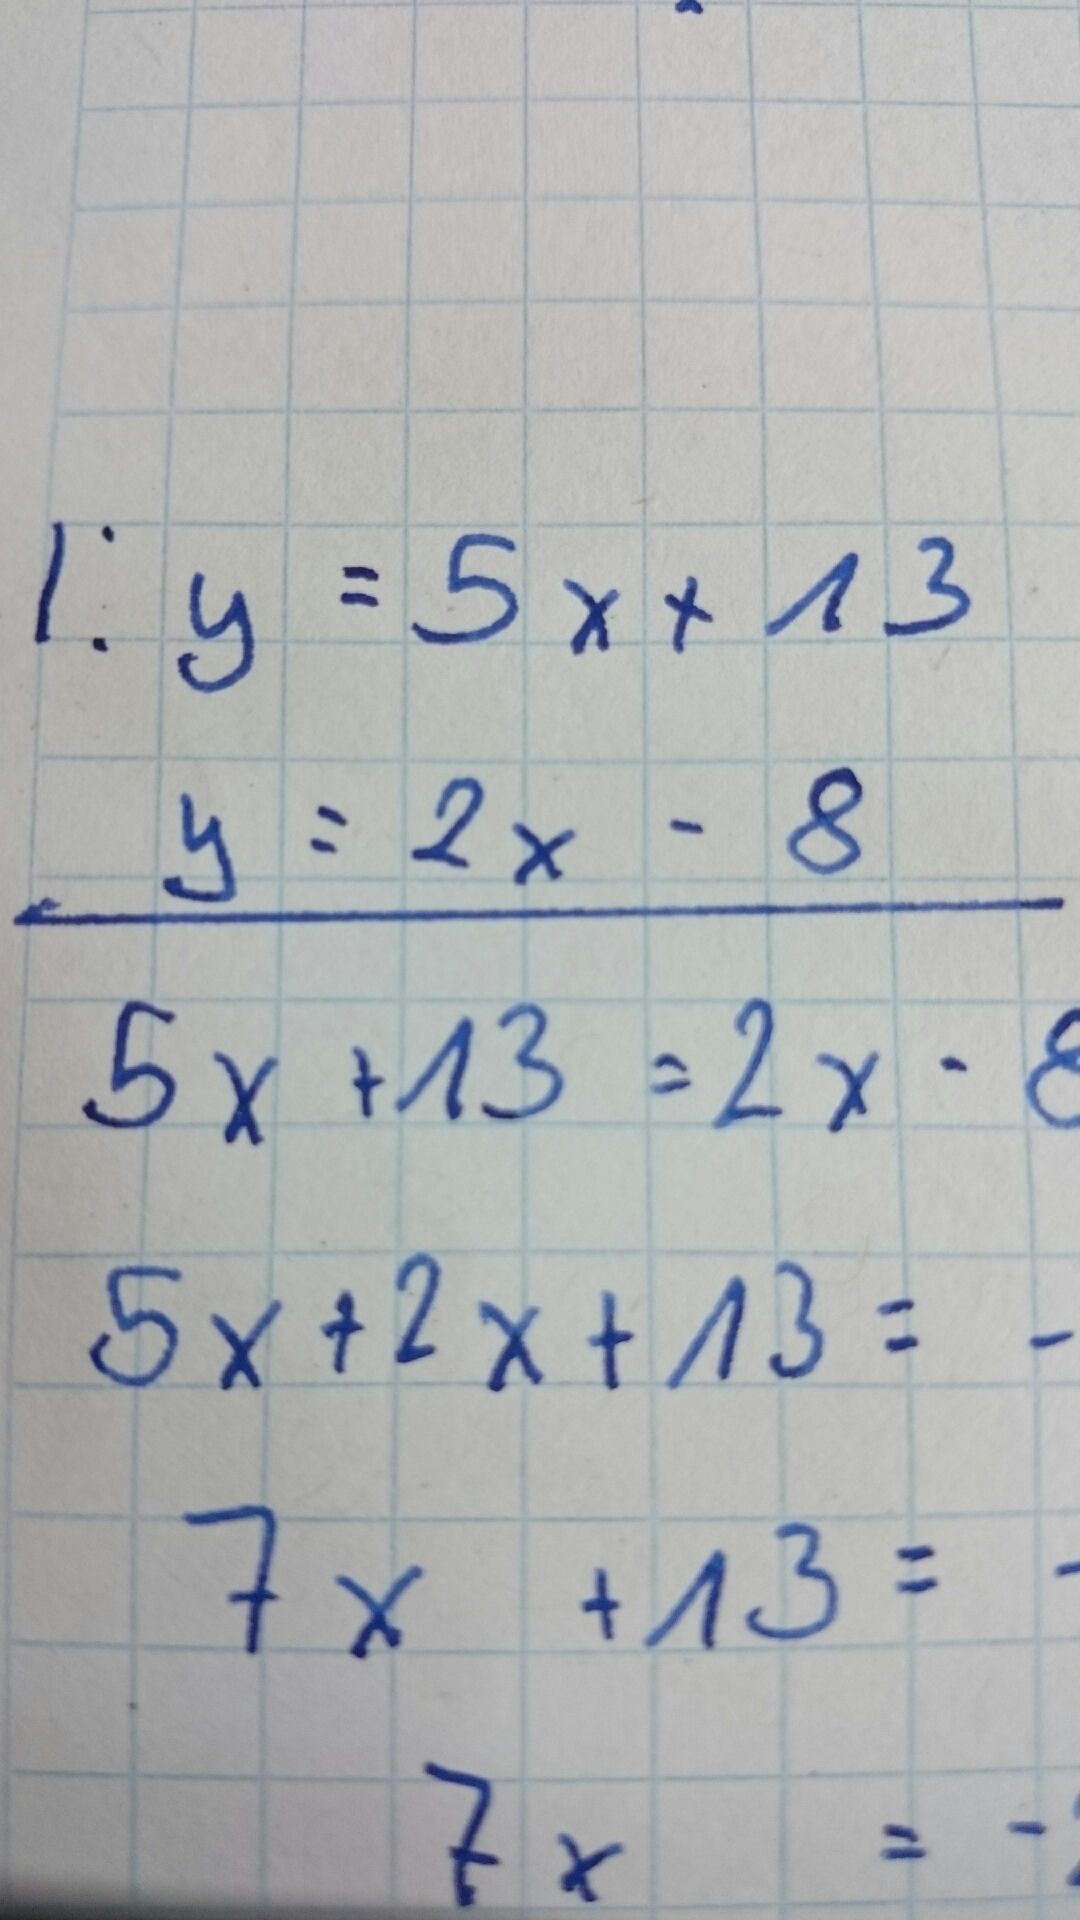 1: y = 5x + 13
y = 2x - 8
5x + 13 = 2x - 8
5x + 2x + 13 = -
7x + 13 = -
7x = -